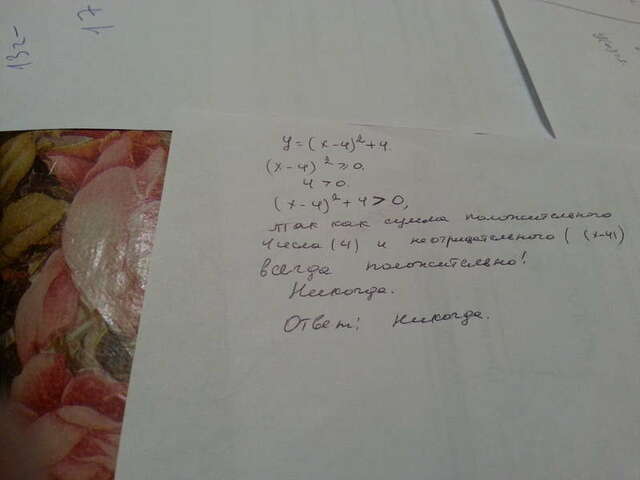 132-
17
y=(x-4)²+4.
(x-4)²≥0.
4>0.
(x-4)²+4>0,
так как сумма положительного
числа (4) и неотрицательного ( (x-4)
всегда положительно!
Никогда.
Ответ: никогда.